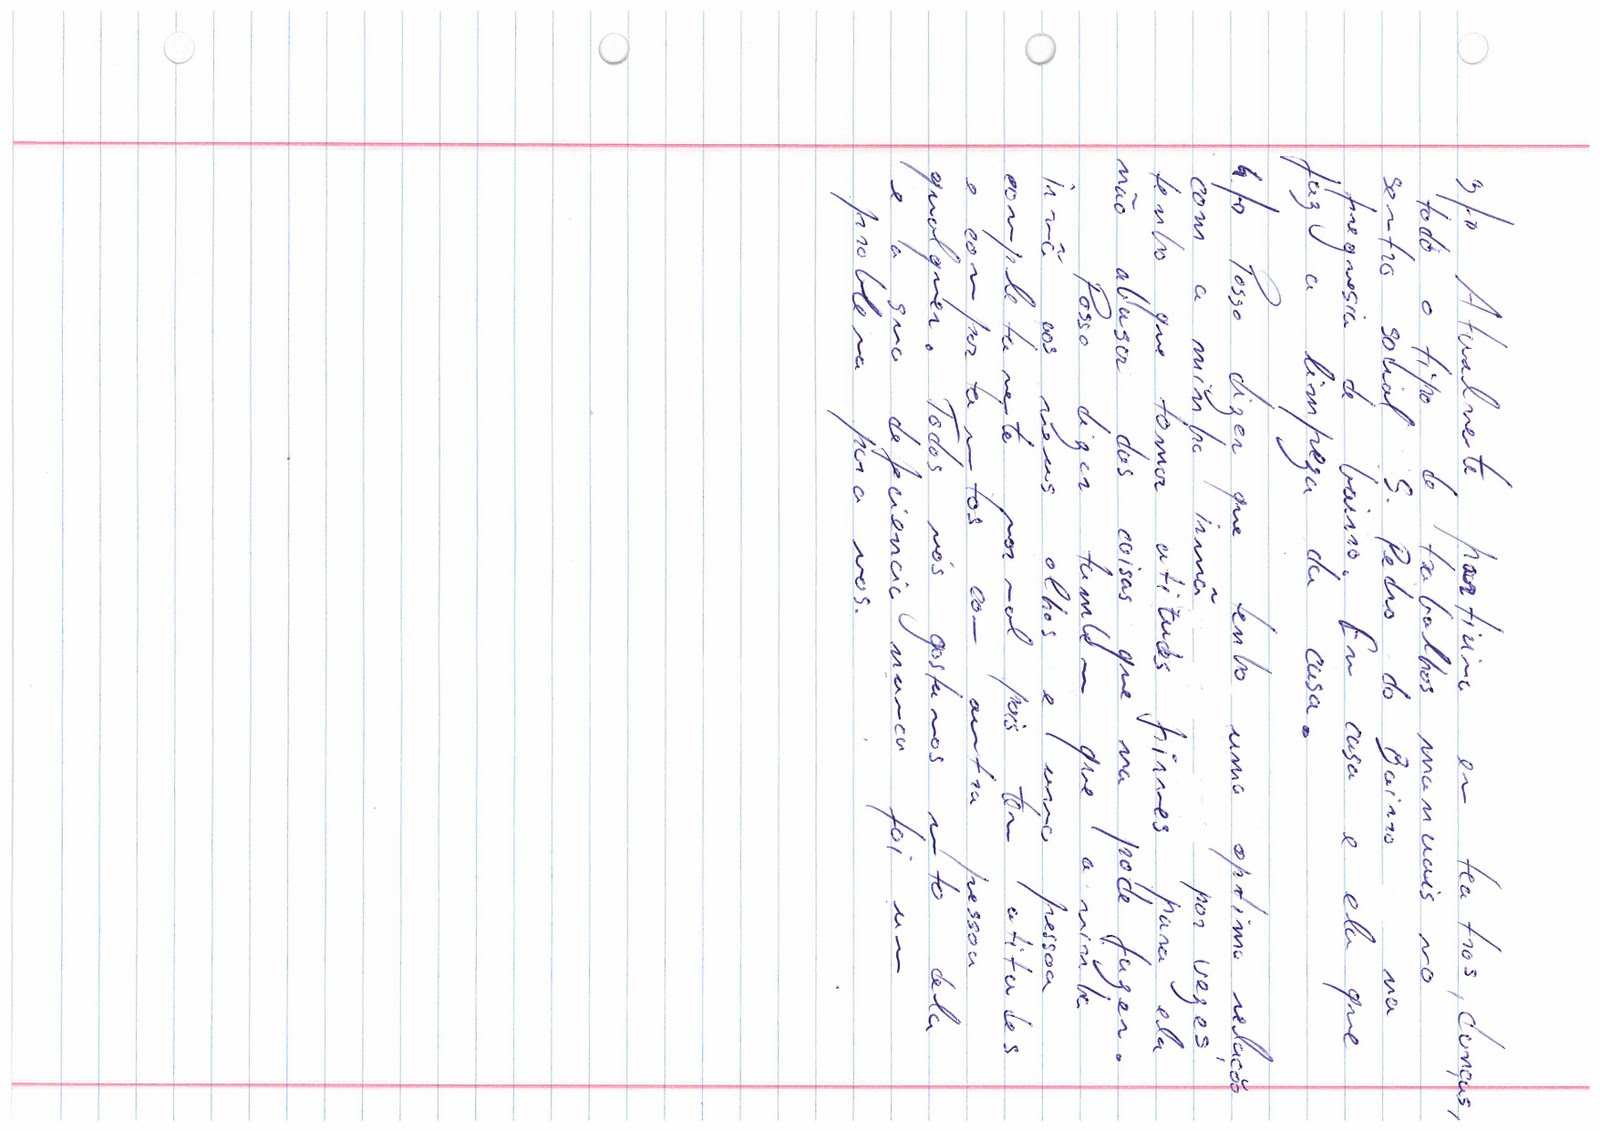 3/º Atualmente participa em teatros, danças,
todo o tipo de trabalhos manuais no
sentro social S. Pedro do Bairro na
freguesia de bairro. Em casa e ela que
faz a limpeza da casa.
4/º Posso dizer que tenho uma optima relação
com a minha irmã por vezes,
tenho que tomar atitudes firmes para ela
não abusar das coisas que na pode fazer.
Posso dizer também que a minha
irmã aos meus olhos e uma pessoa
completamente normal pois tem atitudes
e comportamentos com outra pessoa
qualquer. Todos nós gostamos mto dela
e a sua defeciencia nunca foi um
problema para nos.